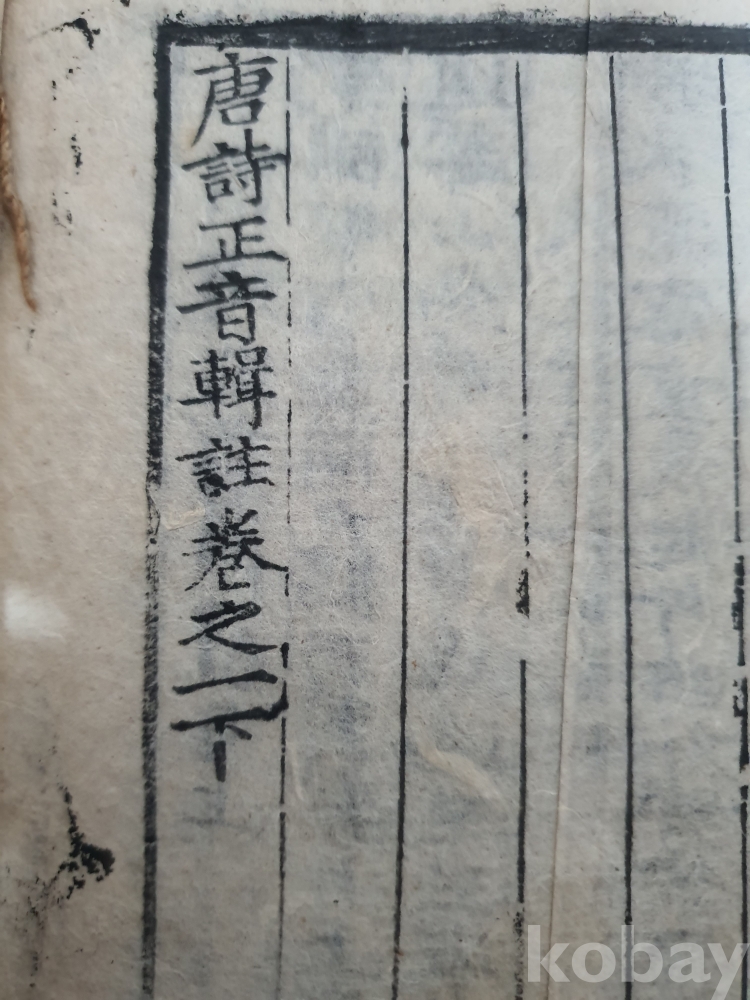 唐詩正音輯註卷之一下
kobay